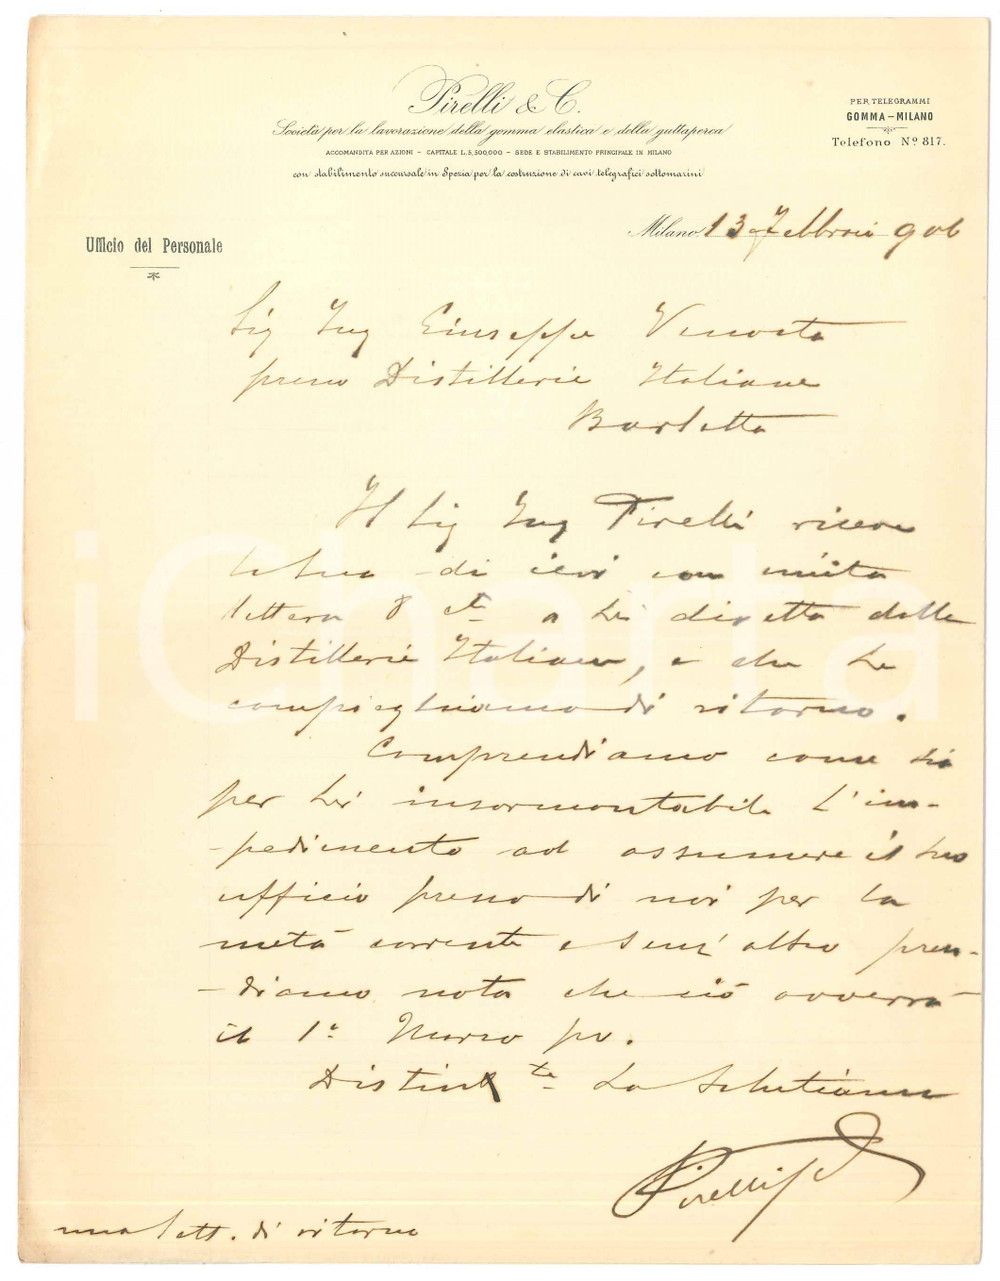 Pirelli & C.
Società per la lavorazione della gomma elastica e della guttaperca
ACCOMANDITA PER AZIONI – CAPITALE L. 5,500,000 – SEDE E STABILIMENTO PRINCIPALE IN MILANO
con stabilimento succursale in Spezia per la costruzione di cavi telegrafici sottomarini
PER TELEGRAMMI
GOMMA – MILANO
Telefono Nº 817.
Ufficio del Personale
Milano, 13 Febbraio 906
Sig Ing Giuseppe Venosta
presso Distillerie Italiane
Barletta
Il Sig Ing Pirelli riceve
la sua di ieri con unita
lettera 8 ct a Lei diretta dalle
Distillerie Italiane, e che Le
compieghiamo di ritorno.
Comprendiamo come sia
per Lei insormontabile l'im-
pedimento ad assumere il suo
ufficio presso di noi per la
metà corrente e senz'altro pren-
diamo nota che ciò avverrà
il 1º Marzo pv.
Distinte La salutiamo
Pirelli
una lett. di ritorno
iCharta